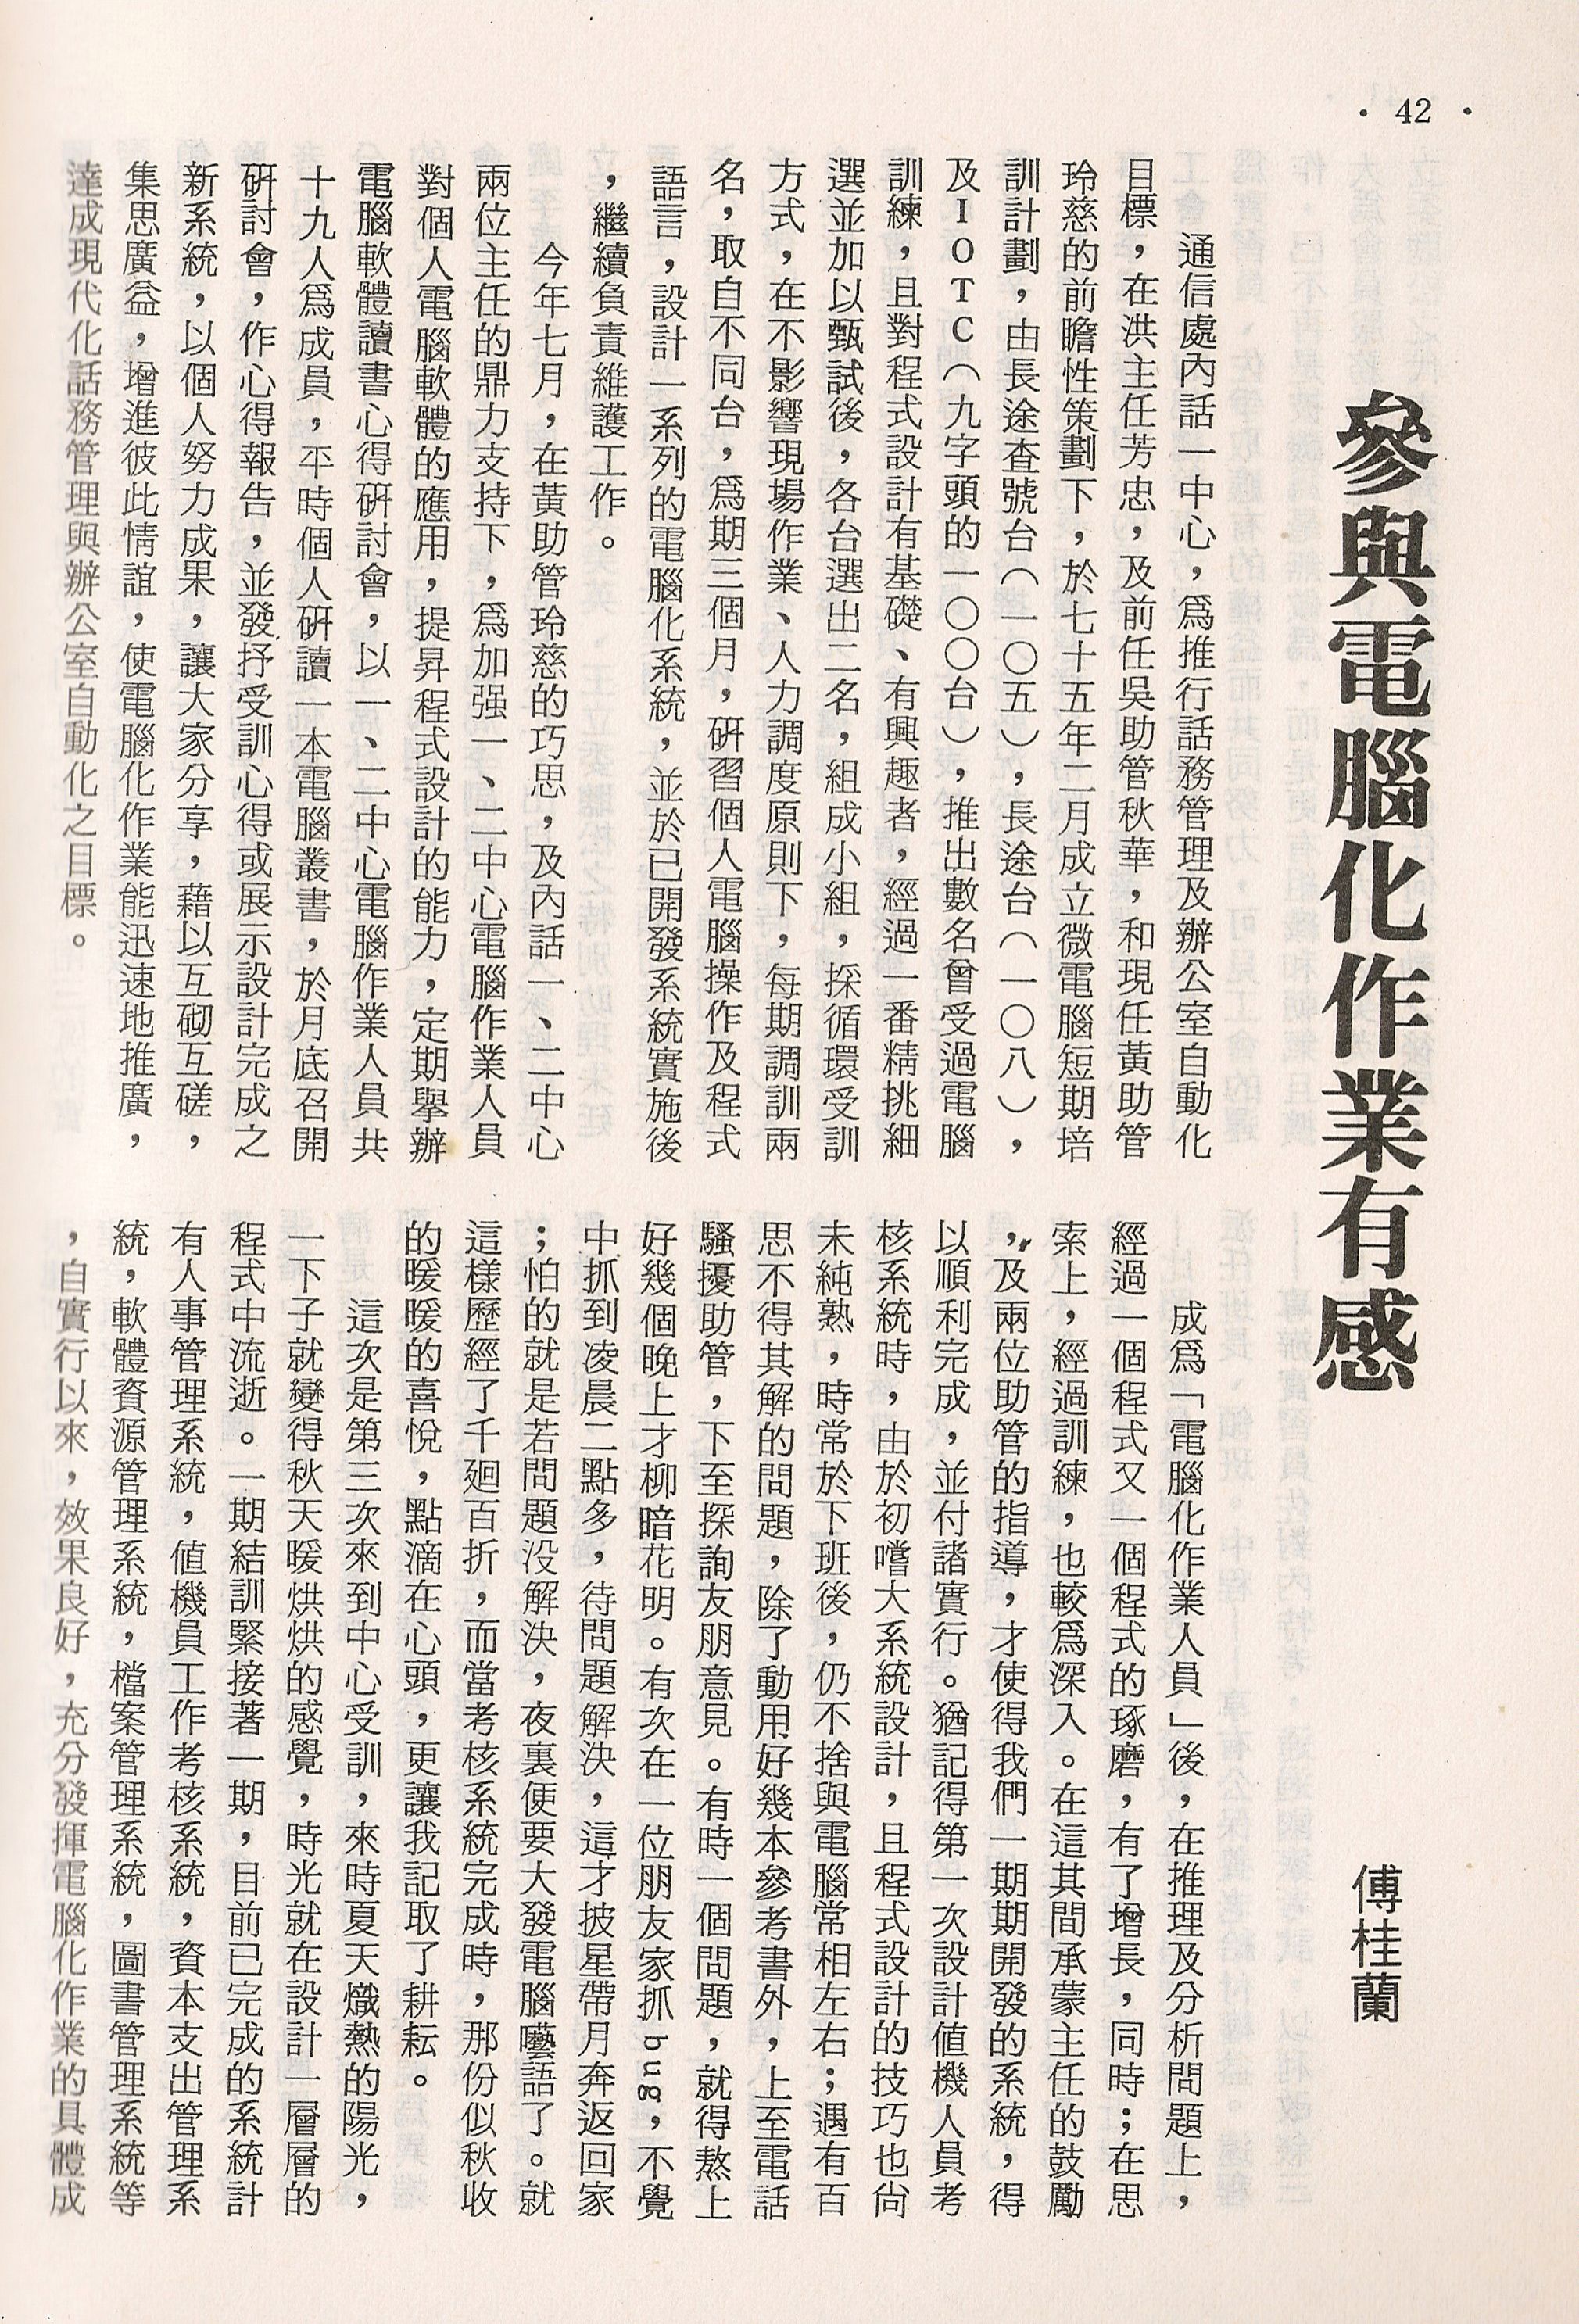 • 42 •
參與電腦化作業有感
傅桂蘭
通信處內話一中心，爲推行話務管理及辦公室自動化
目標，在洪主任芳忠，及前任吳助管秋華，和現任黃助管
玲慈的前瞻性策劃下，於七十五年二月成立微電腦短期培
訓計劃，由長途查號台（一〇五），長途台（一〇八），
及IOTC（九字頭的一〇〇台），推出數名曾受過電腦
訓練，且對程式設計有基礎、有興趣者，經過一番精挑細
選並加以甄試後，各台選出二名，組成小組，採循環受訓
方式，在不影響現場作業、人力調度原則下，每期調訓兩
名，取自不同台，爲期三個月，硏習個人電腦操作及程式
語言，設計一系列的電腦化系統，並於已開發系統實施後
，繼續負責維護工作。
今年七月，在黃助管玲慈的巧思，及內話一、二中心
兩位主任的鼎力支持下，爲加强一、二中心電腦作業人員
對個人電腦軟體的應用，提昇程式設計的能力，定期舉辦
電腦軟體讀書心得硏討會，以一、二中心電腦作業人員共
十九人爲成員，平時個人硏讀一本電腦叢書，於月底召開
硏討會，作心得報告，並發抒受訓心得或展示設計完成之
新系統，以個人努力成果，讓大家分享，藉以互砌互磋，
集思廣益，增進彼此情誼，使電腦化作業能迅速地推廣，
達成現代化話務管理與辦公室自動化之目標。
成爲「電腦化作業人員」後，在推理及分析問題上，
經過一個程式又一個程式的琢磨，有了增長，同時；在思
索上，經過訓練，也較爲深入。在這其間承蒙主任的鼓勵
，及兩位助管的指導，才使得我們一期期開發的系統，得
以順利完成，並付諸實行。猶記得第一次設計値機人員考
核系統時，由於初嚐大系統設計，且程式設計的技巧也尙
未純熟，時常於下班後，仍不捨與電腦常相左右；遇有百
思不得其解的問題，除了動用好幾本參考書外，上至電話
騷擾助管，下至探詢友朋意見。有時一個問題，就得熬上
好幾個晚上才柳暗花明。有次在一位朋友家抓bug，不覺
中抓到凌晨二點多，待問題解決，這才披星帶月奔返回家
；怕的就是若問題没解決，夜裏便要大發電腦囈語了。就
這樣歷經了千廻百折，而當考核系統完成時，那份似秋收
的暖暖的喜悅，點滴在心頭，更讓我記取了耕耘。
這次是第三次來到中心受訓，來時夏天熾熱的陽光，
一下子就變得秋天暖烘烘的感覺，時光就在設計一層層的
程式中流逝。一期結訓緊接著一期，目前已完成的系統計
有人事管理系統，値機員工作考核系統，資本支出管理系
統，軟體資源管理系統，檔案管理系統，圖書管理系統等
，自實行以來，效果良好，充分發揮電腦化作業的具體成